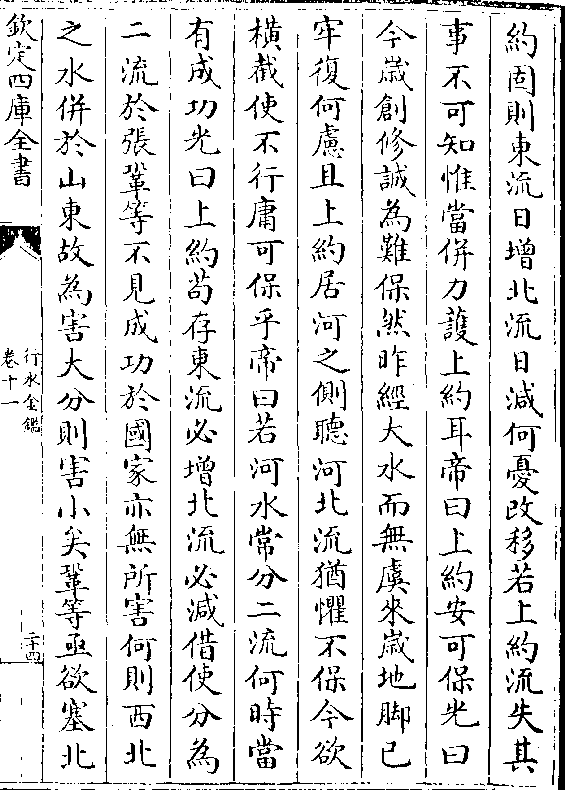 約固則東流日增北流日減何憂改移若上約流失其
事不可知惟當併力護上約耳帝曰上約安可保光曰
今嵗創修誠為難保然昨經大水而無虞來嵗地脚已
牢復何慮且上約居河之側聽河北流猶懼不保今欲
橫截使不行庸可保乎帝曰若河水常分二流何時當
有成功光曰上約茍存東流必增北流必減借使分為
二流於張鞏等不見成功於國家亦無所害何則西北
之水併於山東故為害大分則害小矣鞏等亟欲塞北
欽定四庫全書
行水金鑑
卷十一
二十四